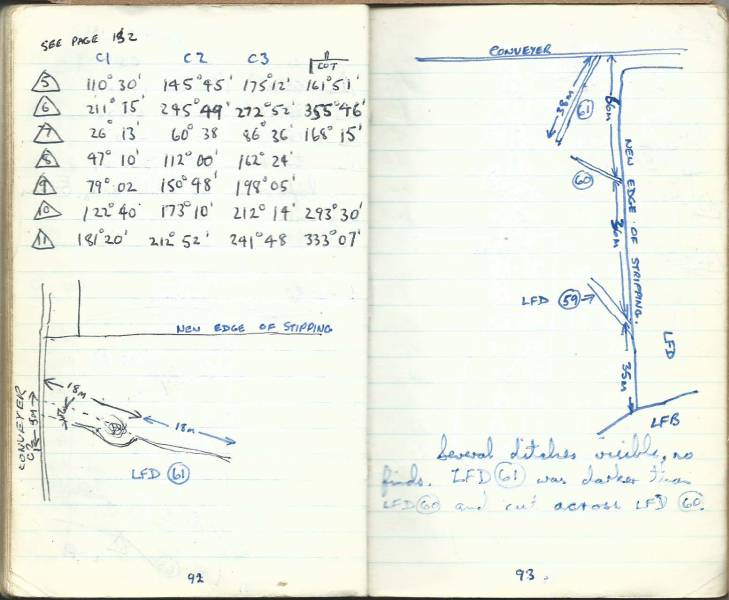 SEE PAGE 132
C1 C2 C3 COT
5 110° 30' 145° 45' 175° 12' 161° 51'
6 211° 15' 245° 49' 272° 52' 355° 46'
7 26° 13' 60° 38 86° 36' 168° 15'
8 47° 10' 112° 00' 162° 24'
9 79° 02 150° 48' 198° 05'
10 122° 40' 173° 10' 212° 14' 293° 30'
11 181° 20' 212° 52' 241° 48 333° 07'
NEW EDGE OF STIPPING
CONVEYER
18m
18m
LFD 61
92
CONVEYER
38m
61
66m
60
NEW EDGE OF STRIPPING.
36m
LFD 59
LFD
35m
LFB
Several ditches visible, no
finds. LFD 61 was darker than
LFD 60 and cut across LFD 60.
93.